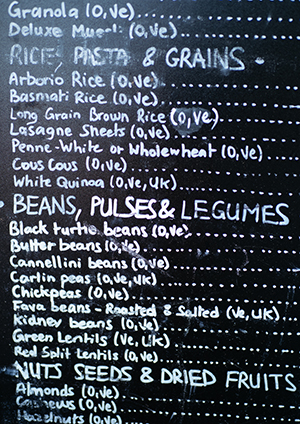 Granola (O,Ve)
Deluxe Muesli (O,Ve)
RICE, PASTA & GRAINS
Arborio Rice (O,Ve)
Basmati Rice (O,Ve)
Long Grain Brown Rice (O,Ve)
Lasagne Sheets (O,Ve)
Penne-White or Wholewheat (O,Ve)
Cous Cous (O,Ve)
White Quinoa (O,Ve,UK)
BEANS, PULSES & LEGUMES
Black turtle beans (O,Ve)
Butter beans (O,Ve)
Cannellini beans (O,Ve)
Carlin peas (O,Ve,UK)
Chickpeas (O,Ve)
Fava beans - Roasted & Salted (Ve,UK)
Kidney beans (O,Ve)
Green Lentils (Ve,UK)
Red Split Lentils (O,Ve)
NUTS SEEDS & DRIED FRUITS
Almonds (O,Ve)
Cashews (O,Ve)
Hazelnuts (O,Ve)